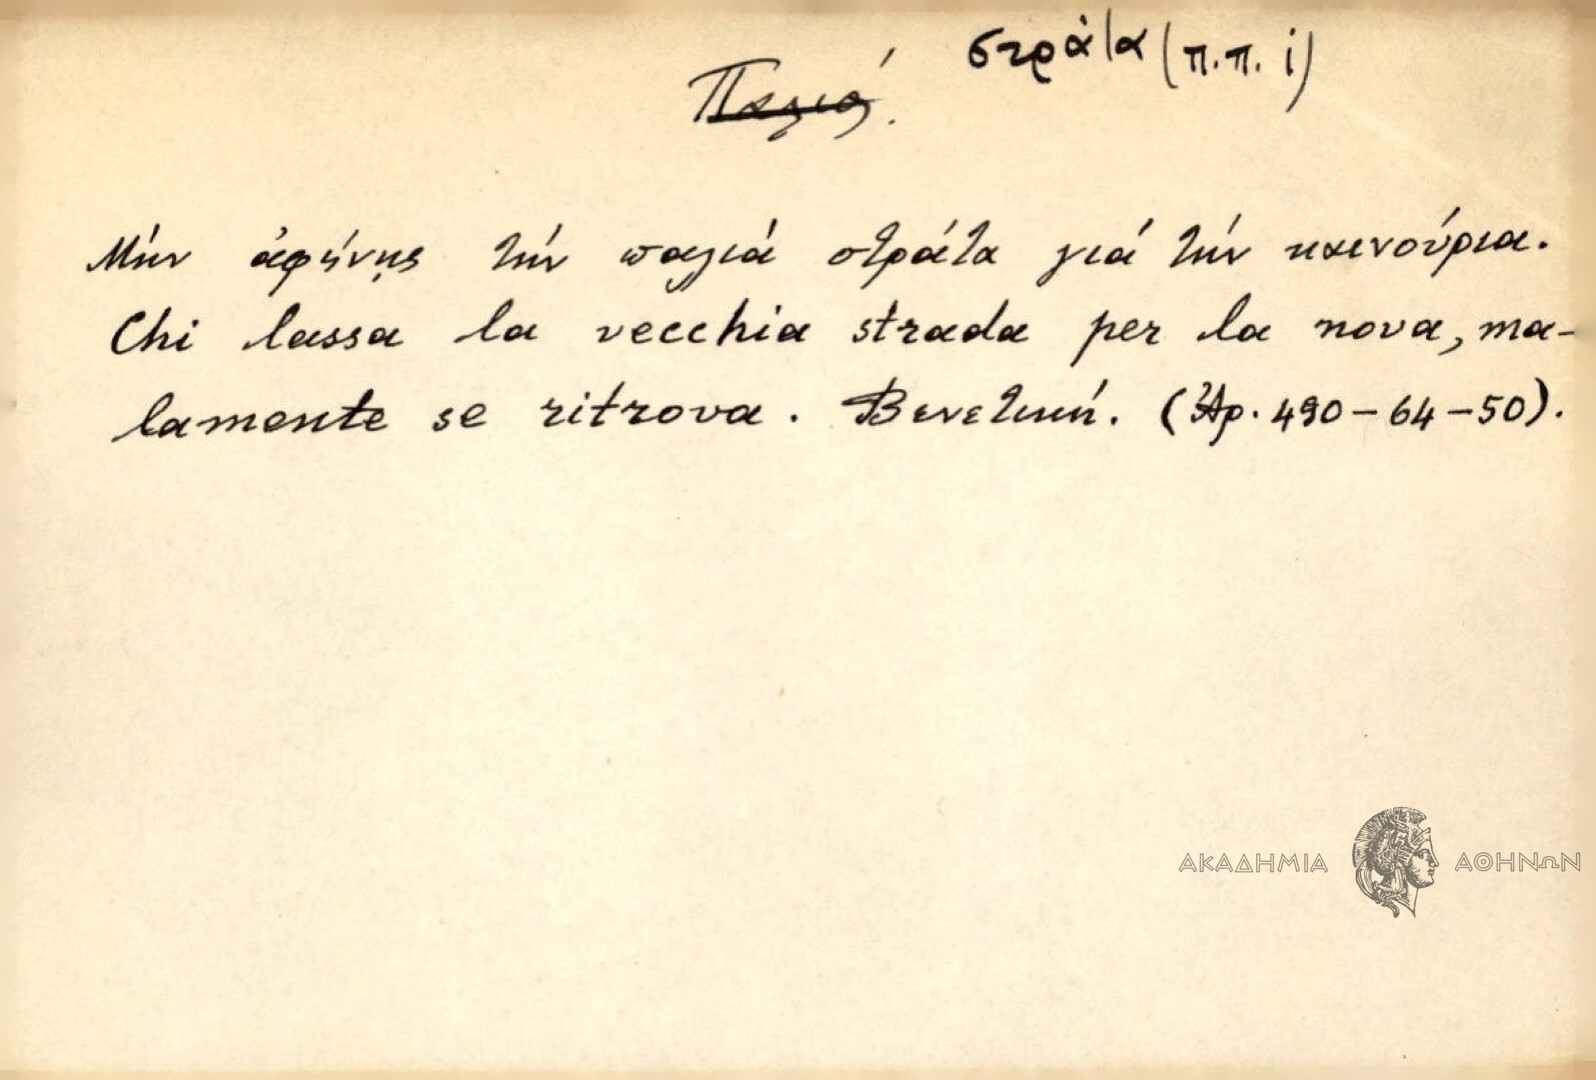 στράτα (π.π. i)
Παλιά.
Μήν ἀφήνῃς τήν παλιά στράτα γιά τήν καινούρια.
Chi lassa la vecchia strada per la nova, ma-
lamente se ritrova. Βενετική. (Ἀρ. 490-64-50).
ΑΚΑΔΗΜΙΑ ΑΘΗΝΩΝ